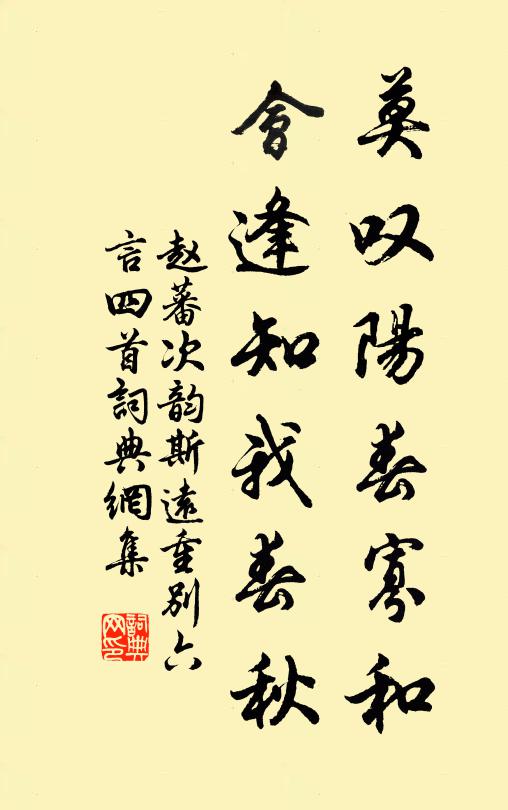 莫叹陽春寡和
會逢知我春秋
赵蕃次韵斯遠重别六
言四首詞典網集
詞典网印